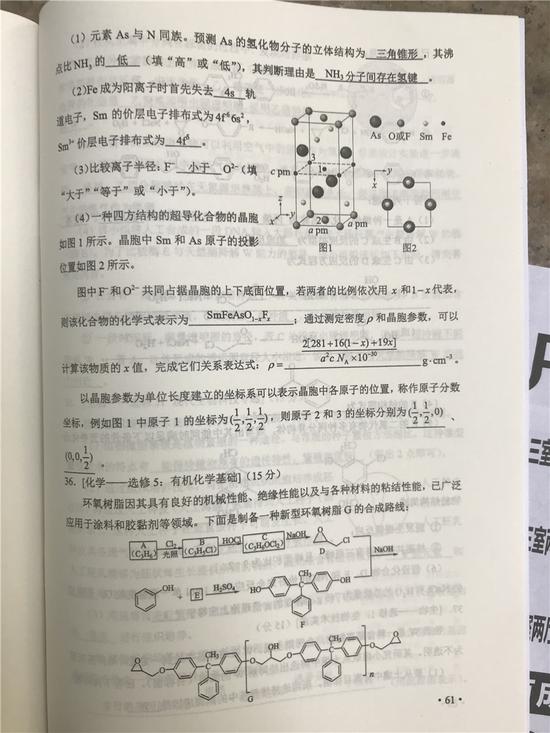 (1)元素 As 与 N 同族。预测 As 的氢化物分子的立体结构为 三角锥形 ,其沸
点比 NH₃ 的 低 (填“高”或“低”),其判断理由是 NH₃分子间存在氢键 。
(2)Fe 成为阳离子时首先失去 4s 轨
道电子,Sm 的价层电子排布式为 4f⁶6s²,
Sm³⁺ 价层电子排布式为 4f⁵ 。
(3)比较离子半径:F⁻ 小于 O²⁻(填
“大于”“等于”或“小于”)。
(4)一种四方结构的超导化合物的晶胞
如图 1 所示。晶胞中 Sm 和 As 原子的投影
位置如图 2 所示。
As O或F Sm Fe
c pm
3
1
2
a pm
a pm
z
y
x
图1
y
x
图2
图中 F⁻ 和 O²⁻ 共同占据晶胞的上下底面位置,若两者的比例依次用 x 和 1−x 代表,
则该化合物的化学式表示为 SmFeAsO₁₋ₓFₓ ;通过测定密度 ρ 和晶胞参数,可以
计算该物质的 x 值,完成它们关系表达式:ρ= 2[281+16(1−x)+19x] / a²c N_A×10⁻³⁰ g·cm⁻³。
以晶胞参数为单位长度建立的坐标系可以表示晶胞中各原子的位置,称作原子分数
坐标,例如图 1 中原子 1 的坐标为(1/2,1/2,1/2),则原子 2 和 3 的坐标分别为 (1/2,1/2,0) 、
(0,0,1/2) 。
36. [化学——选修 5:有机化学基础](15 分)
环氧树脂因其具有良好的机械性能、绝缘性能以及与各种材料的粘结性能,已广泛
应用于涂料和胶黏剂等领域。下面是制备一种新型环氧树脂 G 的合成路线:
A (C₃H₆) Cl₂ 光照 B (C₃H₅Cl) HOCl C (C₃H₆OCl₂) NaOH O Cl D
NaOH
OH + E H₂SO₄ HO CH₃ OH F
O O CH₃ O OH O CH₃ O O n G
·61·